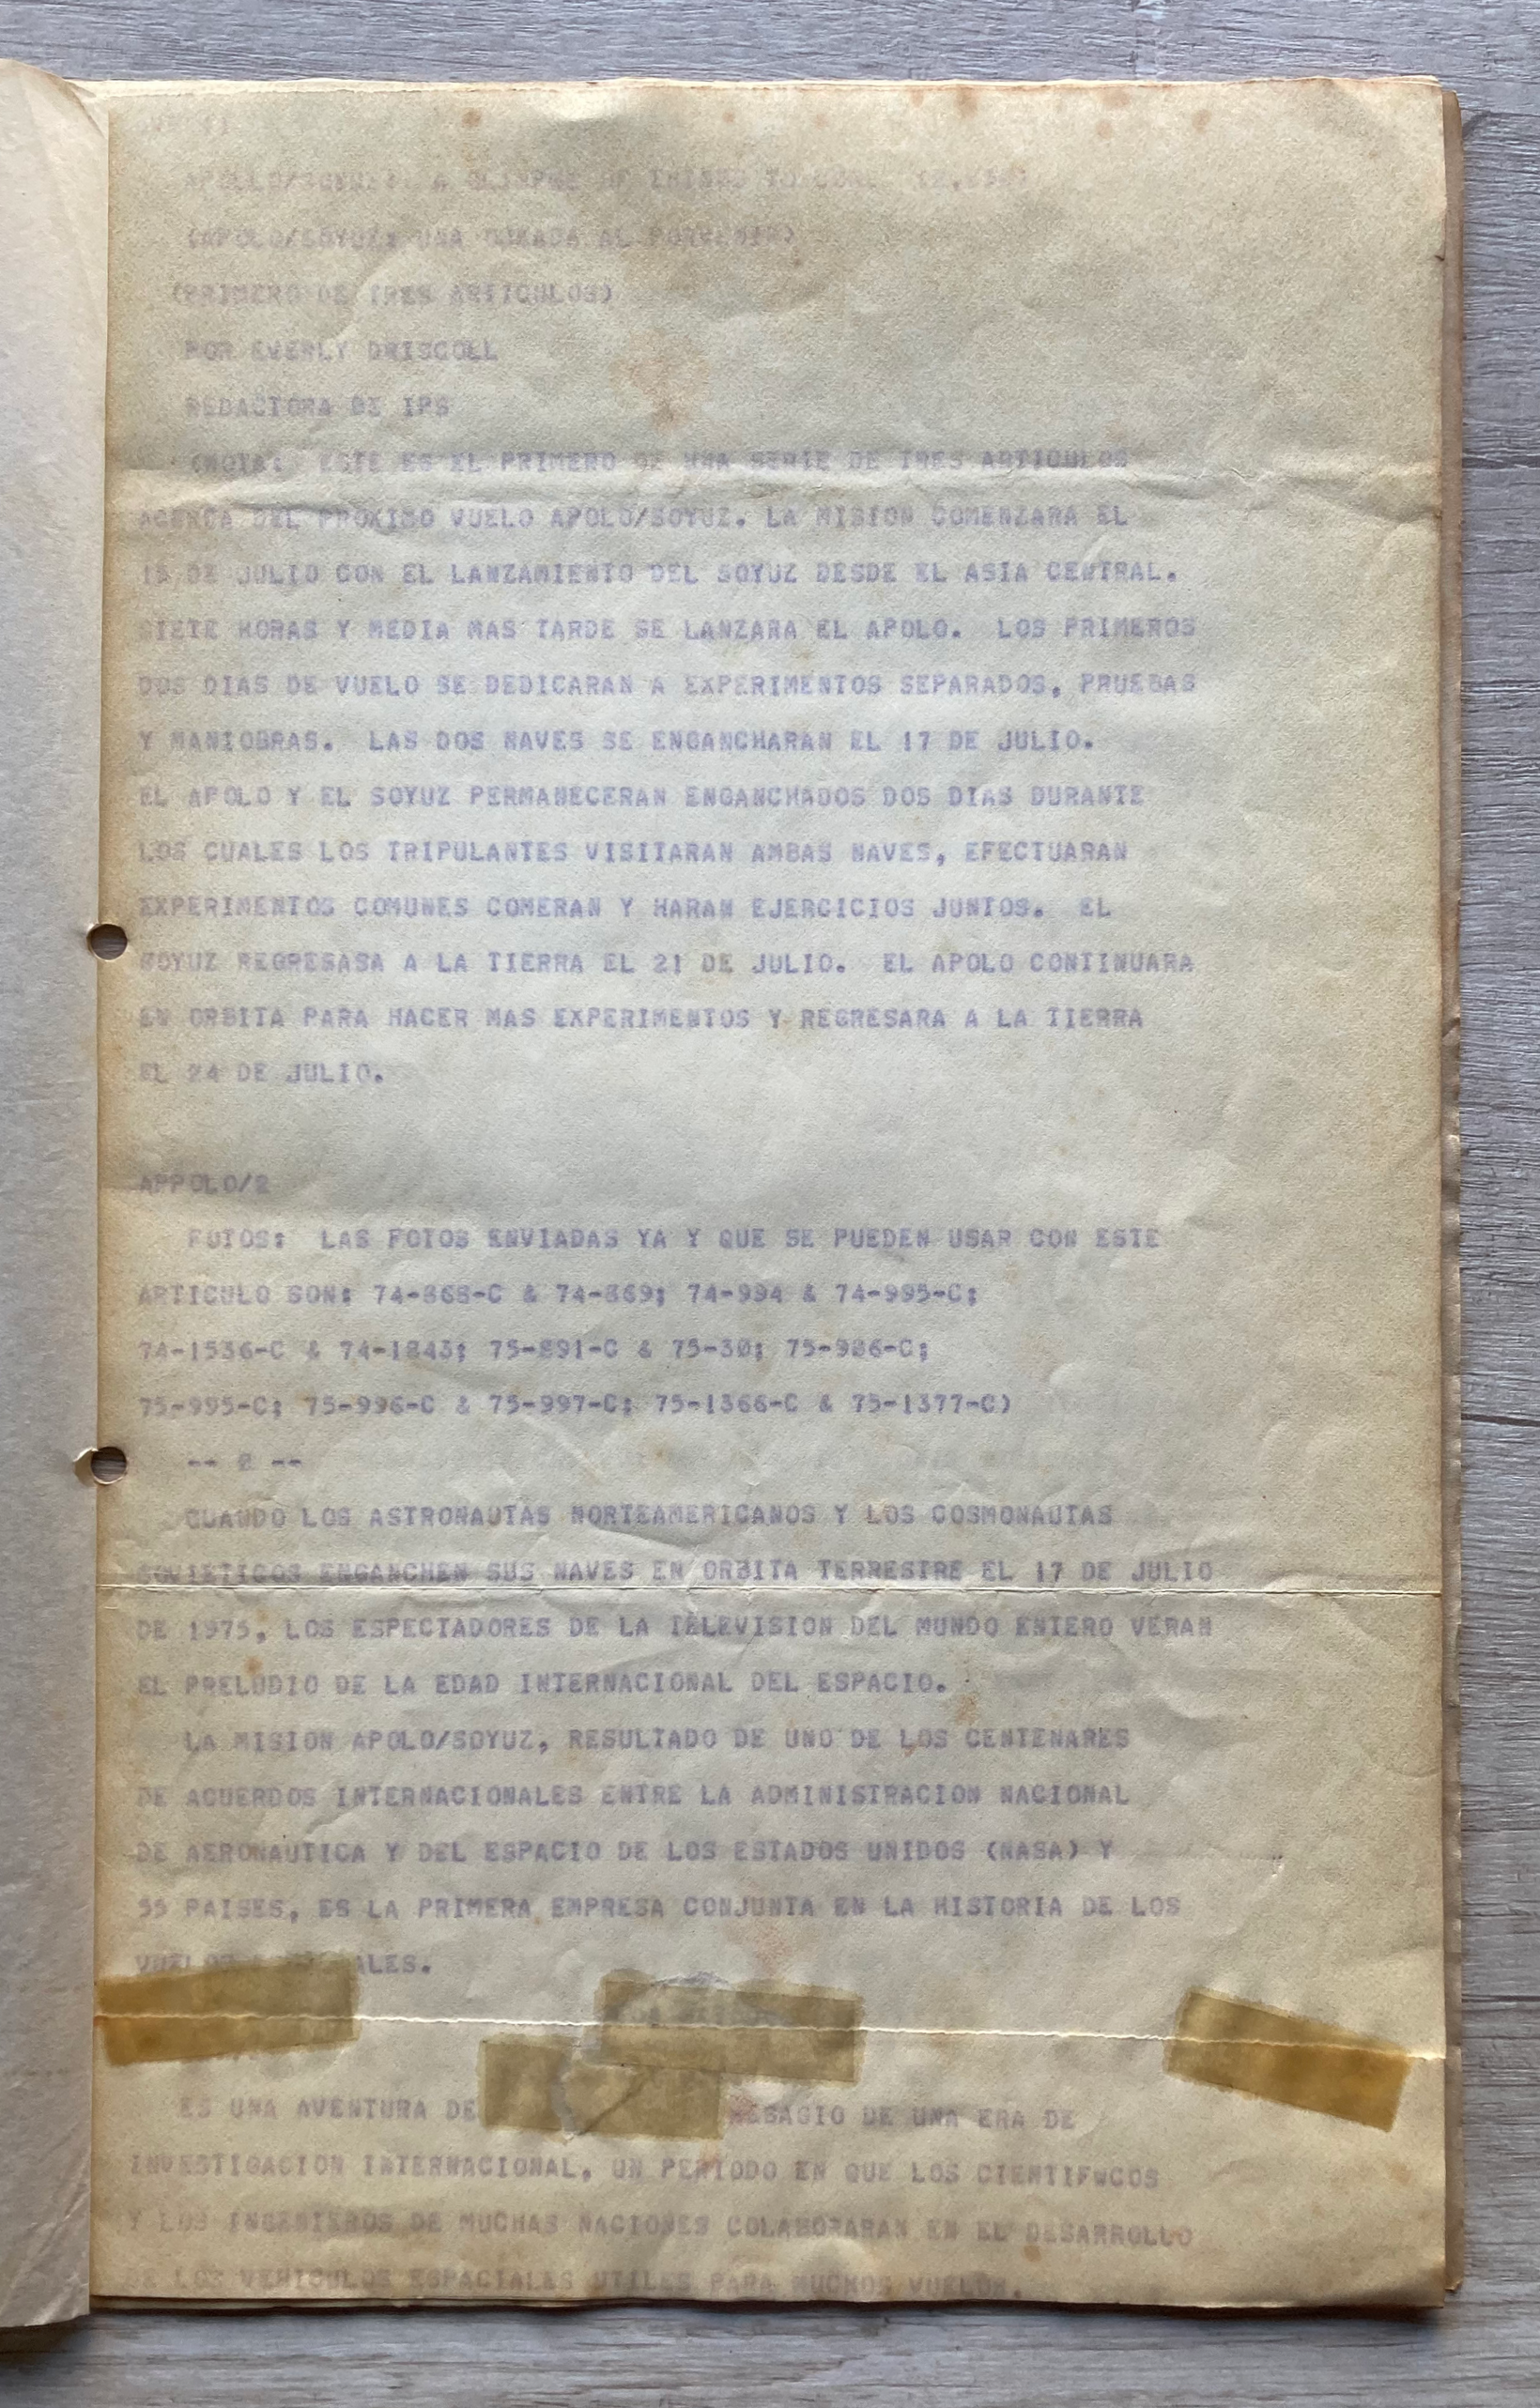 APOLLO/SOYUZ: A GLIMPSE OF THINGS TO COME
(APOLO/SOYUZ: UNA OJEADA AL PORVENIR)
(PRIMERO DE TRES ARTICULOS)
POR EVERLY DRISCOLL
REDACTORA DE IPS
(NOTA: ESTE ES EL PRIMERO DE UNA SERIE DE TRES ARTICULOS
ACERCA DEL PROXIMO VUELO APOLO/SOYUZ. LA MISION COMENZARA EL
15 DE JULIO CON EL LANZAMIENTO DEL SOYUZ DESDE EL ASIA CENTRAL.
SIETE HORAS Y MEDIA MAS TARDE SE LANZARA EL APOLO. LOS PRIMEROS
DOS DIAS DE VUELO SE DEDICARAN A EXPERIMENTOS SEPARADOS, PRUEBAS
Y MANIOBRAS. LAS DOS NAVES SE ENGANCHARAN EL 17 DE JULIO.
EL APOLO Y EL SOYUZ PERMANECERAN ENGANCHADOS DOS DIAS DURANTE
LOS CUALES LOS TRIPULANTES VISITARAN AMBAS NAVES, EFECTUARAN
EXPERIMENTOS COMUNES COMERAN Y HARAN EJERCICIOS JUNTOS. EL
SOYUZ REGRESASA A LA TIERRA EL 21 DE JULIO. EL APOLO CONTINUARA
EN ORBITA PARA HACER MAS EXPERIMENTOS Y REGRESARA A LA TIERRA
EL 24 DE JULIO.
APPOLO/2
FOTOS: LAS FOTOS ENVIADAS YA Y QUE SE PUEDEN USAR CON ESTE
ARTICULO SON: 74-868-C & 74-869; 74-994 & 74-995-C;
74-1536-C & 74-1843; 75-891-C & 75-30; 75-986-C;
75-995-C; 75-996-C & 75-997-C; 75-1366-C & 75-1377-C)
-- 0 --
CUANDO LOS ASTRONAUTAS NORTEAMERICANOS Y LOS COSMONAUTAS
SOVIETICOS ENGANCHEN SUS NAVES EN ORBITA TERRESTRE EL 17 DE JULIO
DE 1975, LOS ESPECTADORES DE LA TELEVISION DEL MUNDO ENTERO VERAN
EL PRELUDIO DE LA EDAD INTERNACIONAL DEL ESPACIO.
LA MISION APOLO/SOYUZ, RESULTADO DE UNO DE LOS CENTENARES
DE ACUERDOS INTERNACIONALES ENTRE LA ADMINISTRACION NACIONAL
DE AERONAUTICA Y DEL ESPACIO DE LOS ESTADOS UNIDOS (NASA) Y
55 PAISES, ES LA PRIMERA EMPRESA CONJUNTA EN LA HISTORIA DE LOS
VUELOS ESPACIALES.
ES UNA AVENTURA DE
DE UNA ERA DE
INVESTIGACION INTERNACIONAL, UN PERIODO EN QUE LOS CIENTIFWCOS
Y LOS INGENIEROS DE MUCHAS NACIONES COLABORARAN EN EL DESARROLLO
DE LOS VEHICULOS ESPACIALES UTILES PARA MUCHOS VUELOS.